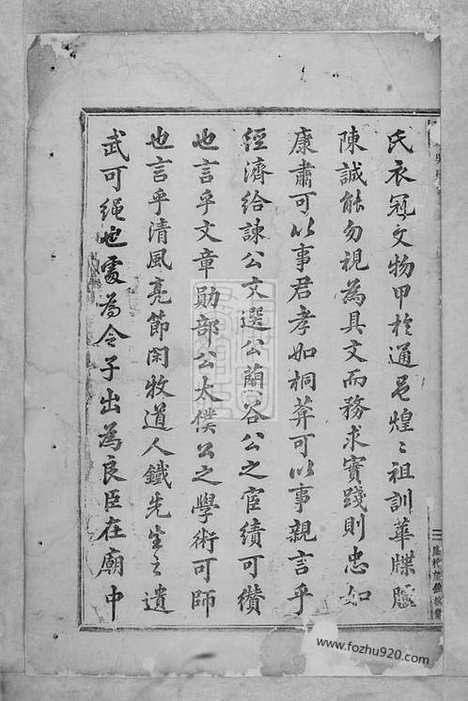 氏衣冠文物甲於通邑煌〻祖訓華牒臚
陳誠能勿視為具文而務求實踐則忠如
康肅可以事君孝如桐葬可以事親言乎
經濟給諫公文選公蘭谷公之宦績可纘
也言乎文章勛部公太樸公之學術可師
也言乎清風亮節閑牧道人鐵先生之遺
武可繩也處為令子出為良臣在廟中
www.fozhu920.com